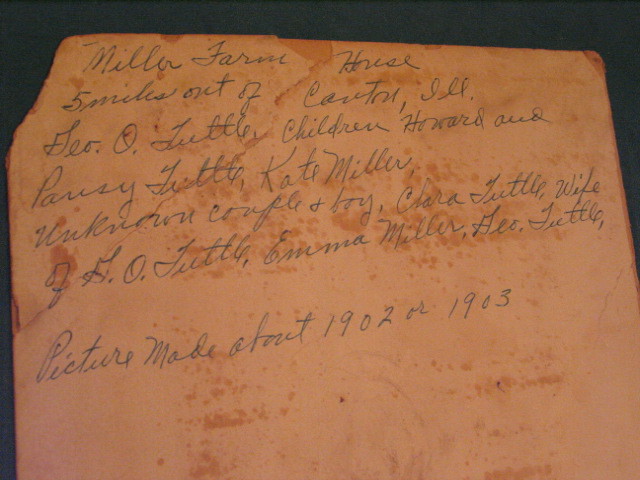 Miller Farm House
5 miles out of Canton, Ill.
Geo. O. Tuttle, Children Howard and
Pansy Tuttle, Kate Miller,
Unknown couple & boy, Clara Tuttle, Wife
of G. O. Tuttle, Emma Miller, Geo. Tuttle,
Picture Made about 1902 or 1903